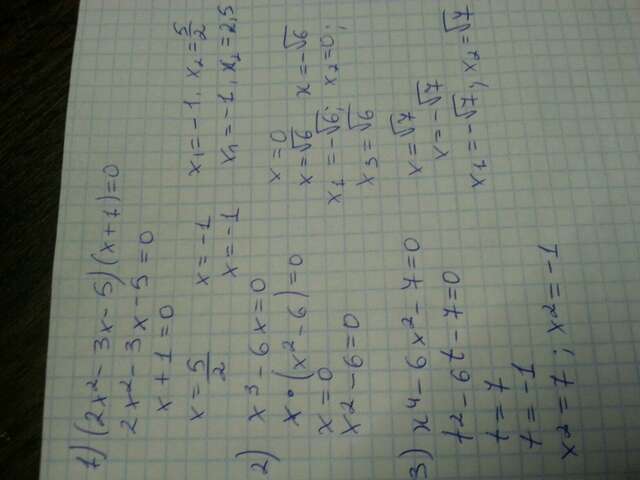 1) (2x² - 3x - 5)(x + 1) = 0
2x² - 3x - 5 = 0
x + 1 = 0
x = 5/2   x = -1   x₁ = -1, x₂ = 5/2
x = -1   x₁ = -1, x₂ = 2,5
2) x³ - 6x = 0
x • (x² - 6) = 0   x = 0
x = 0   x = √6   x = -√6
x² - 6 = 0   x₁ = -√6; x₂ = 0;
x₃ = √6
3) x⁴ - 6x² - 7 = 0   x = √7
t² - 6t - 7 = 0   x = -√7
t = 7   x₁ = -√7; x₂ = √7
t = -1
x² = 7; x² = -1